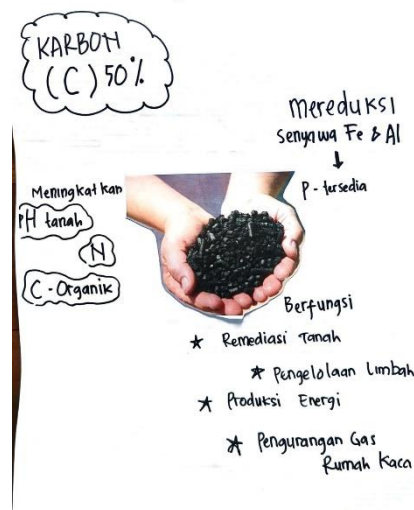 KARBON
(C) 50%
Mereduksi
Senyawa Fe & Al
P - tersedia
Meningkatkan
pH tanah
N
C - Organik
Berfungsi
Remediasi Tanah
Pengelolaan Limbah
Produksi Energi
Pengurangan Gas
Rumah Kaca